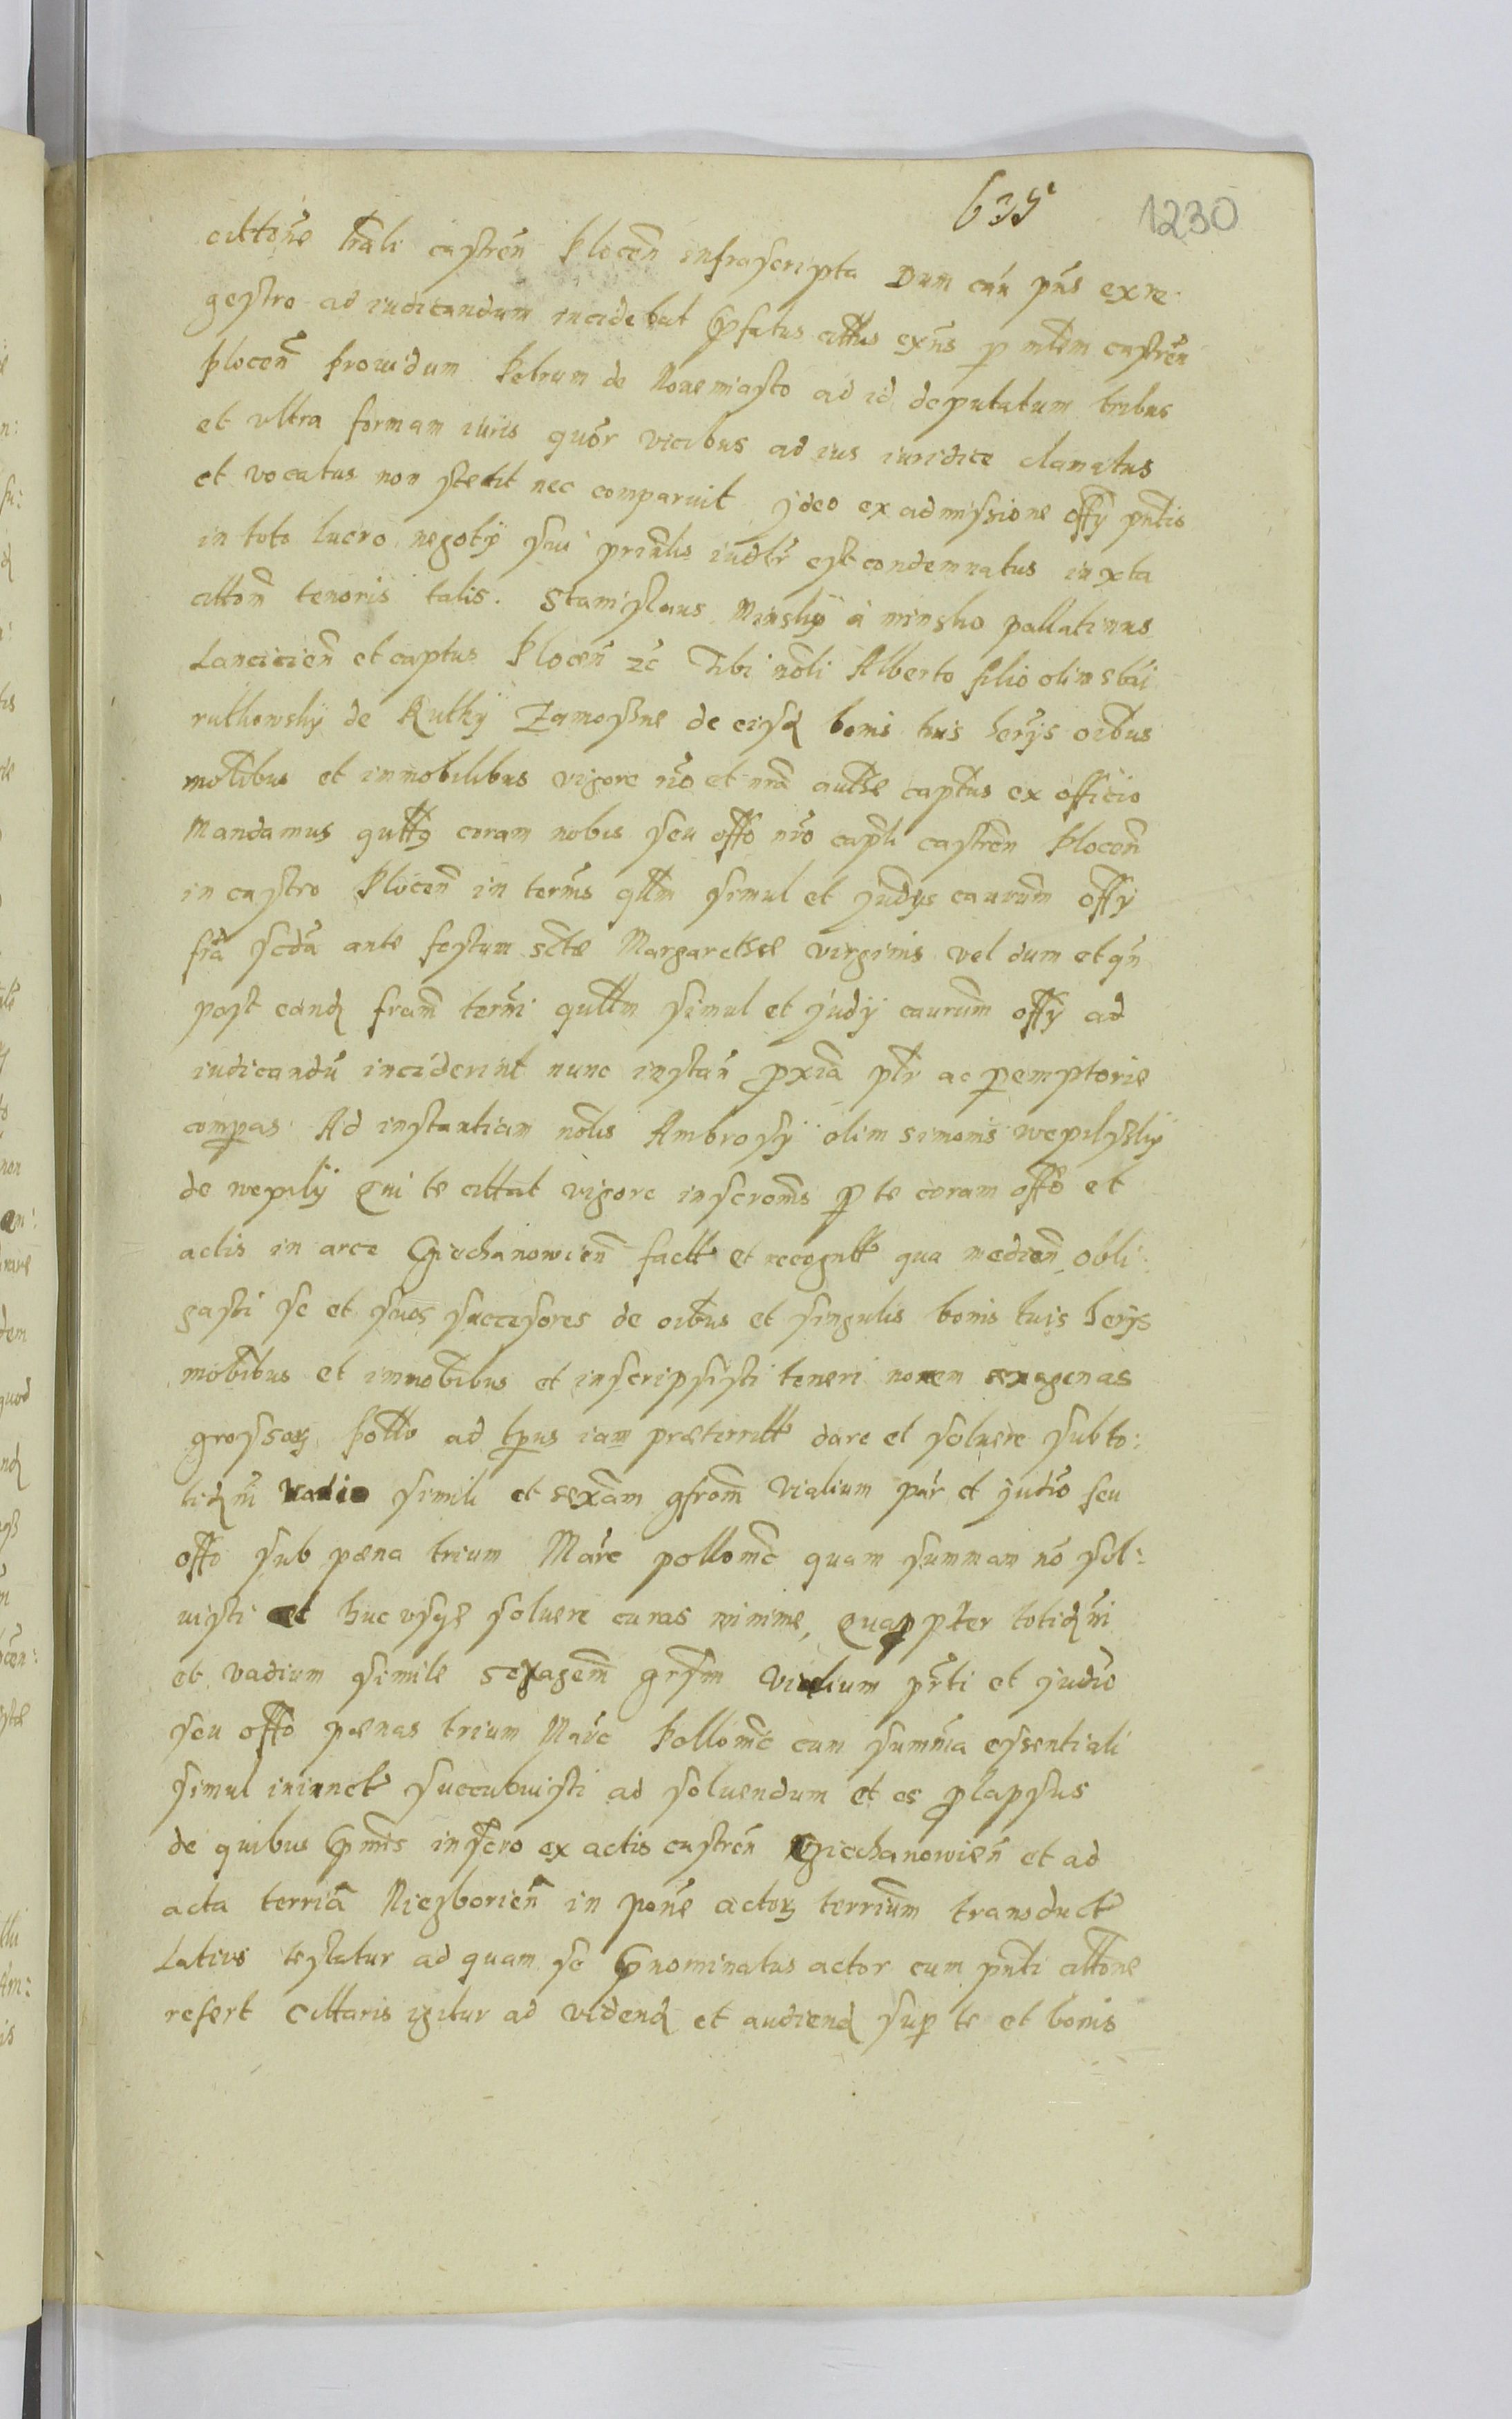 635 1230
cittone trali castren̄ Plocen̄ infrascripta Dum cau p̄ns ex re
gestro ad iudicandum incidebat p̄fatus cittus exn̄s p mltem castren̄
Plocen̄ Prouidum Petrum de Nouemiasto ad id deputatum tribus
et vltra formam iuris quōr vicibus ad ius iuridice clamatus
et vocatus non stetit nec comparuit jdeo ex admissione offy pn̄tis
in toto lucro negoty sui prin̄lis iudlr est condemnatus iuxta
citton̄ tenoris talis. Stanislaus Minsky a minsko pallatinus
Lancicien̄ et captus Plocen̄ zc̄ Tibi nōli Alberto filio olim sbāi
rutkowsky de Rutky de eisd bonis tuis herys oībus
mōbibus et immobilibus vigore et nrā authe captus ex officio
Mandamus qutts coram nobis seu offo nrō capli castren̄ Plocen̄
in castro Plocen̄ in termīs qllm simul et judys caurum̄ offy
fr̄a scdā ante festum sctæ Margarethæ virginis vel dum et qn̄
post eand fram̄ termi quttm simul et judy caurum̄ offy ad
iudicandū inciderint nunc instan̄ pxīa ptr ac pemptorie
compas Ad instantiam nōlis Ambrosy olim simonis wepilsky
de wepily Qui te cittat vigore inscronīs p te coram offō et
actis in arce Cziechanowien̄ factt et recogntt qua medien̄ obli:
gasti se et suos succesores de oibus et singulis bonis tuis herys
mōbibus et immobībus et inscripsisti teneri nouem sexagenas
grossor Potto ad tpus iam præteritt dare et soluere sub to:
tidm̄ vadio simili et sexām gsrom̄ vialium par et judīo seu
offo sub pæna trium Marc pollomc̄ quam summam nō sol:
uisti et huc usqe soluere curas minime, Quappter totidm̄
et vadium simile sexagem̄ grsm Vialium p̄ti et judīo
seu offō pænas trium Marc Pollomc̄ cum summa essentiali
simul iniunct succubuisti ad soluendum et es plapsus
de quibus p̄mis inscro ex actis castren̄ Cziechanowien̄ et ad
acta terriā in pōne actor terrium̄ transduct
Latius testatur ad quam se p̄nominatus actor cum pn̄ti cittone
refert Cittaris igitur ad vidend et audiend sup te et bonis